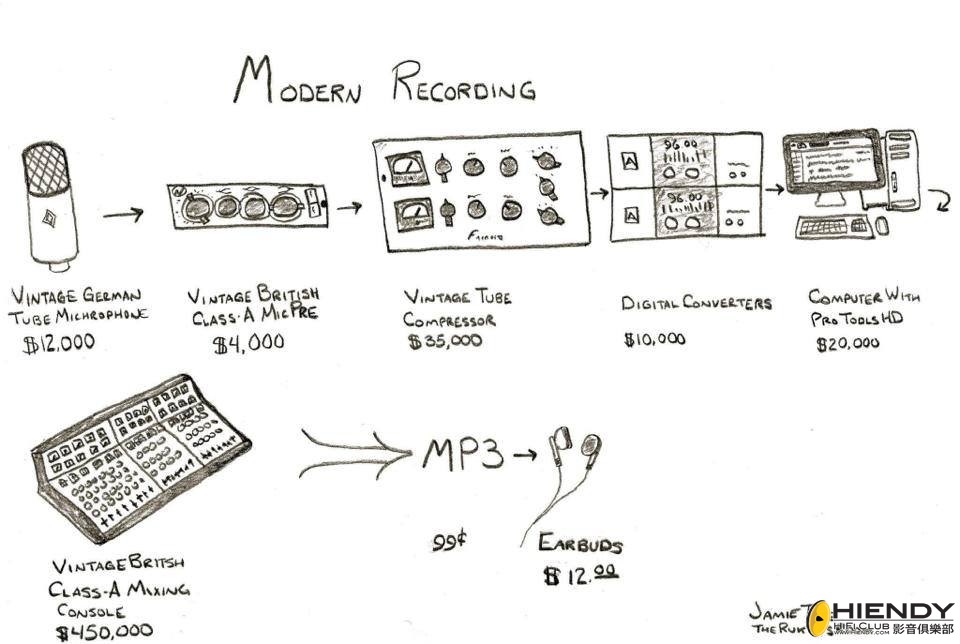 MODERN RECORDING
VINTAGE GERMAN
TUBE MICHROPHONE
$12,000
VINTAGE BRITISH
CLASS-A MIC PRE
$4,000
VINTAGE TUBE
COMPRESSOR
$35,000
96.00
A
96.00
A
DIGITAL CONVERTERS
$10,000
COMPUTER WITH
PRO TOOLS HD
$20,000
VINTAGE BRITSH
CLASS-A MIXING
CONSOLE
$450,000
MP3
99¢
EARBUDS
$12.00
JAMIE
THE RUK
HIENDY
HIFI CLUB 影音俱樂部
WWW.HIENDY.COM